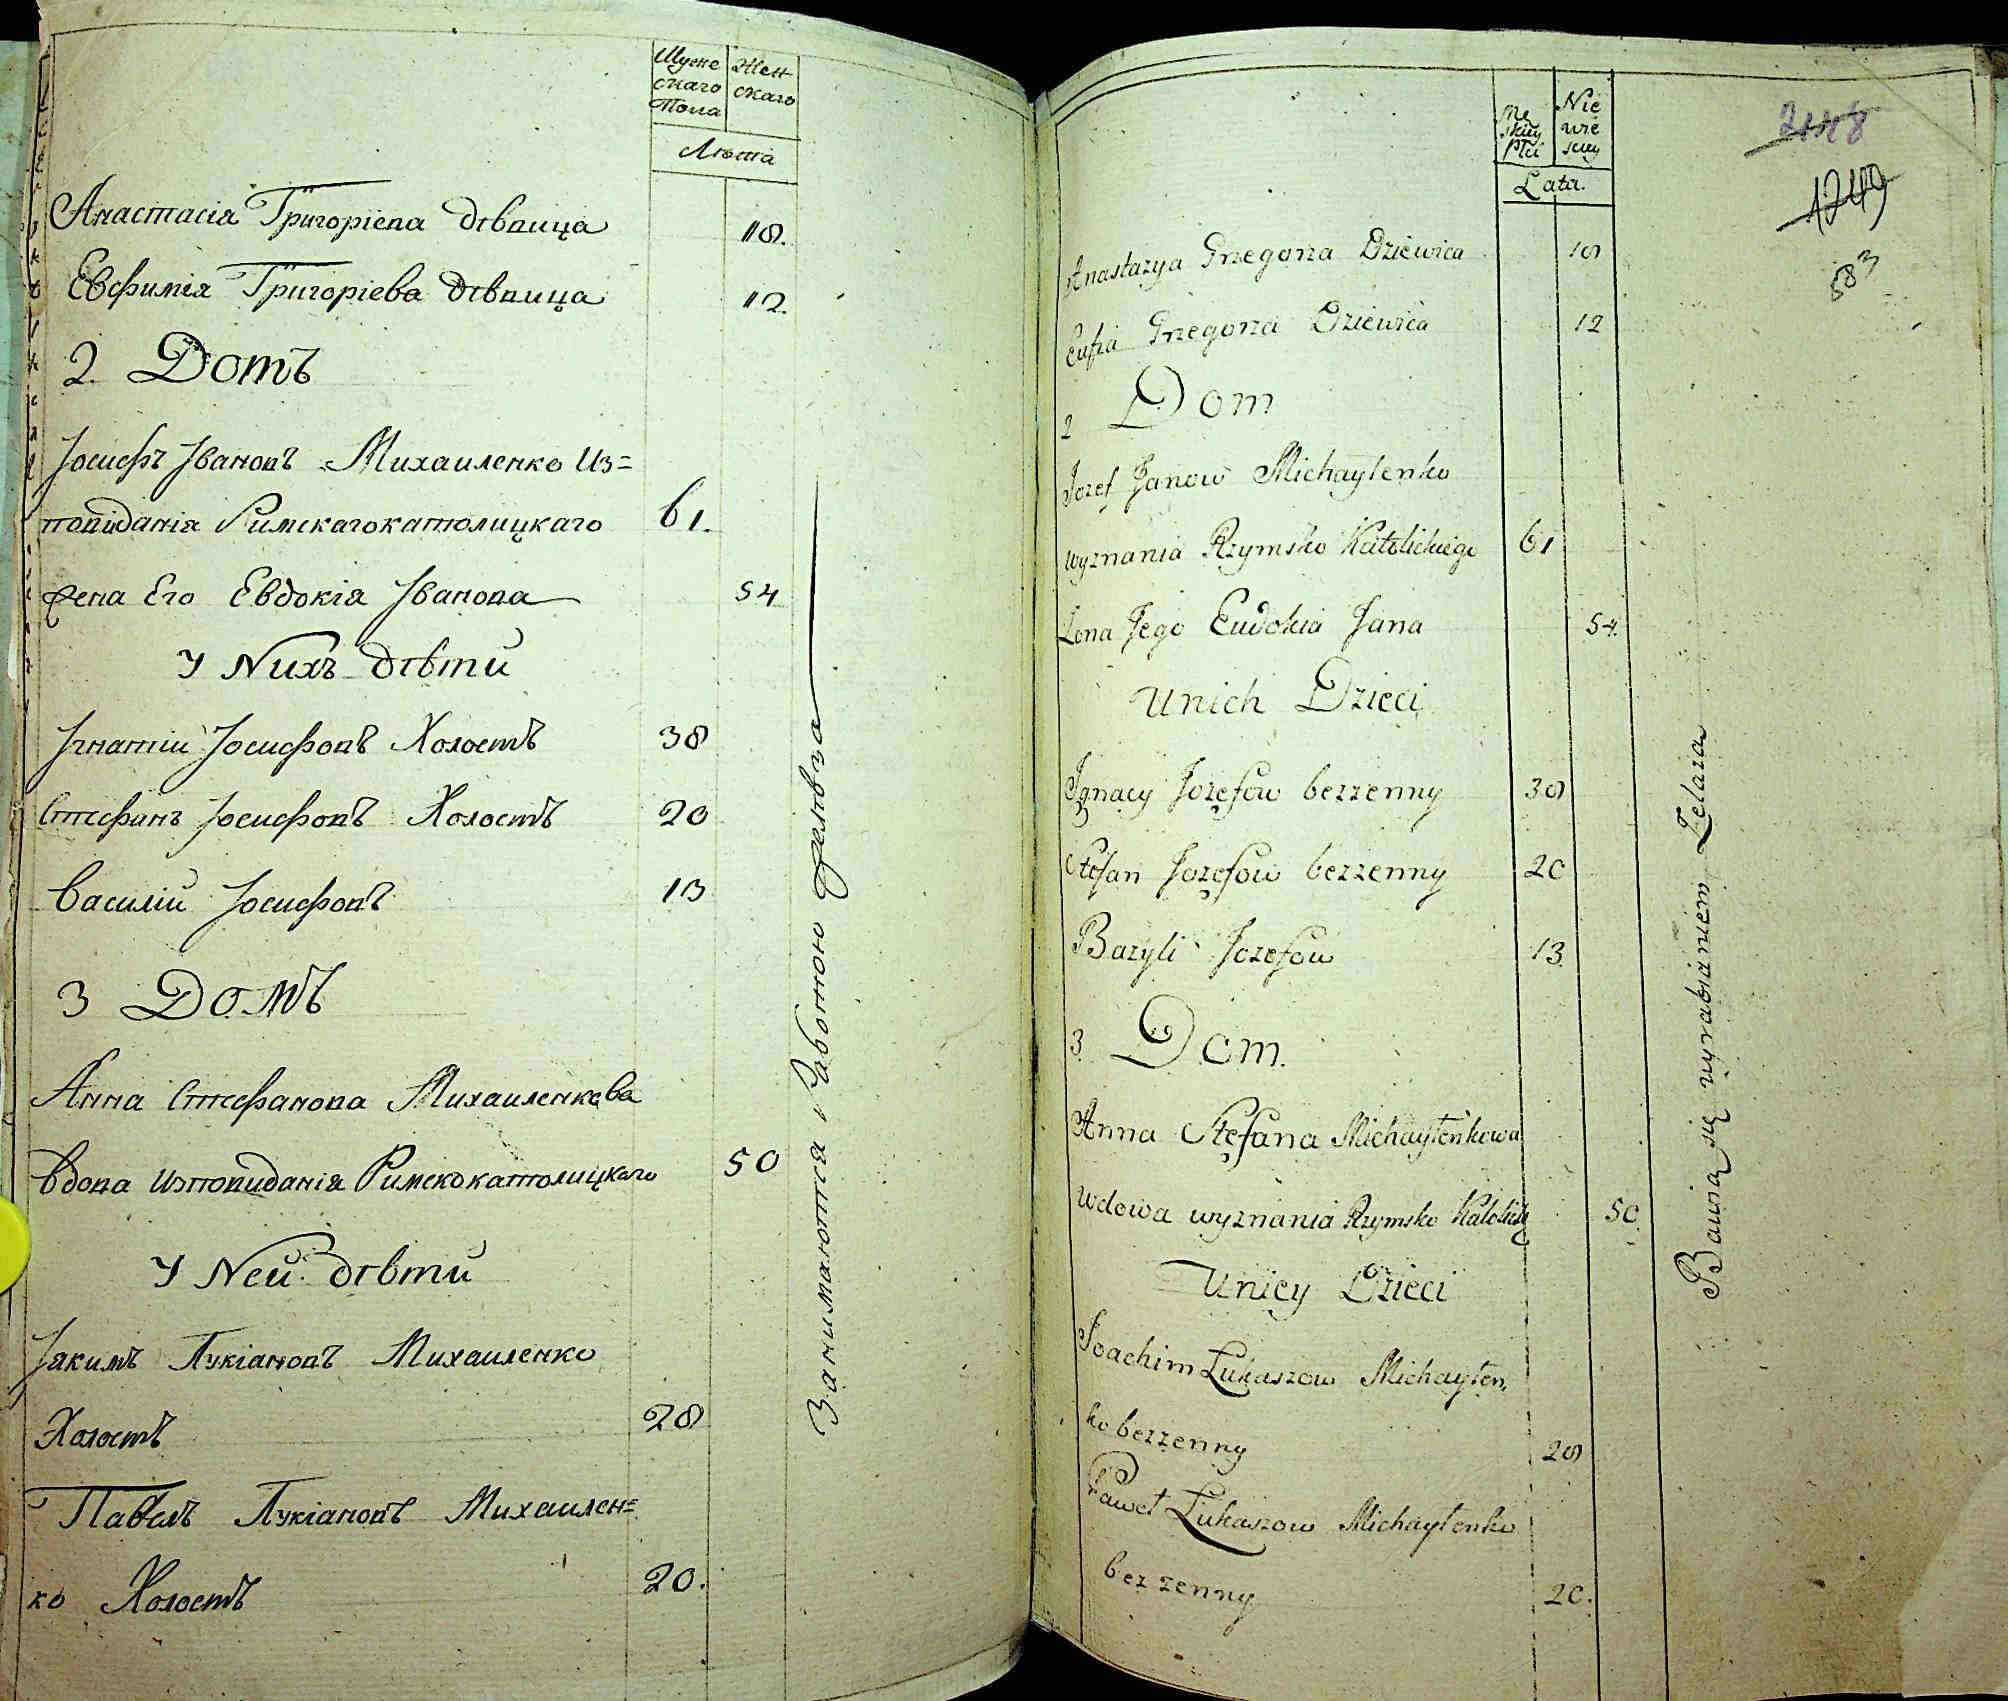 Мужескаго Пола
Женскаго
Лѣта
Анастасія Григоріева дѣвица 18.
Евфимія Григоріева дѣвица 12.
2. Домъ
Іосифъ Івановъ Михаиленко Из=
повиданія Римскагокатолицкаго 61.
жена Его Евдокія Іванова 54
У Nихъ дѣти
Ігнатіи Іосифовъ Холостъ 38
Стефанъ Іосифовъ Холостъ 20
Василіи Іосифовъ 13
3 Домъ
Анна Стефанова Михаиленкова
Вдова изповиданія Римскокатолицкаго 50
У Nей дѣти
Іякимъ Лукіановъ Михаиленко
Холостъ 28
Павелъ Лукіановъ Михаилен=
ко Холостъ 20.
Занимаются Работою желѣза
Męskiy Płci
Niewiesciy
Lata.
2148
1249
583
Anastazya Grzegorza Dziewica 18
Eufia Grzegorza Dziewica 12
2 Dom
Jozef Janow Michayłenko
wyznania Rzymsko Katolickiego 61
Zona Jego Eudokia Jana 54.
Unich Dzieci
Ignacy Jozefow bezzenny 38
Stefan Jozefow bezzenny 20
Bazyli Jozefow 13
3 Dom.
Anna Stefana Michayłenkowa
Wdowa wyznania Rzymsko Katolick 50
Unięy Dzieci
Joachim Łukaszow Michayłen
ko bezzenny 28
Paweł Łukaszow Michayłenko
bezzenny 20.
Bawią się wyrabianiem Żelaza